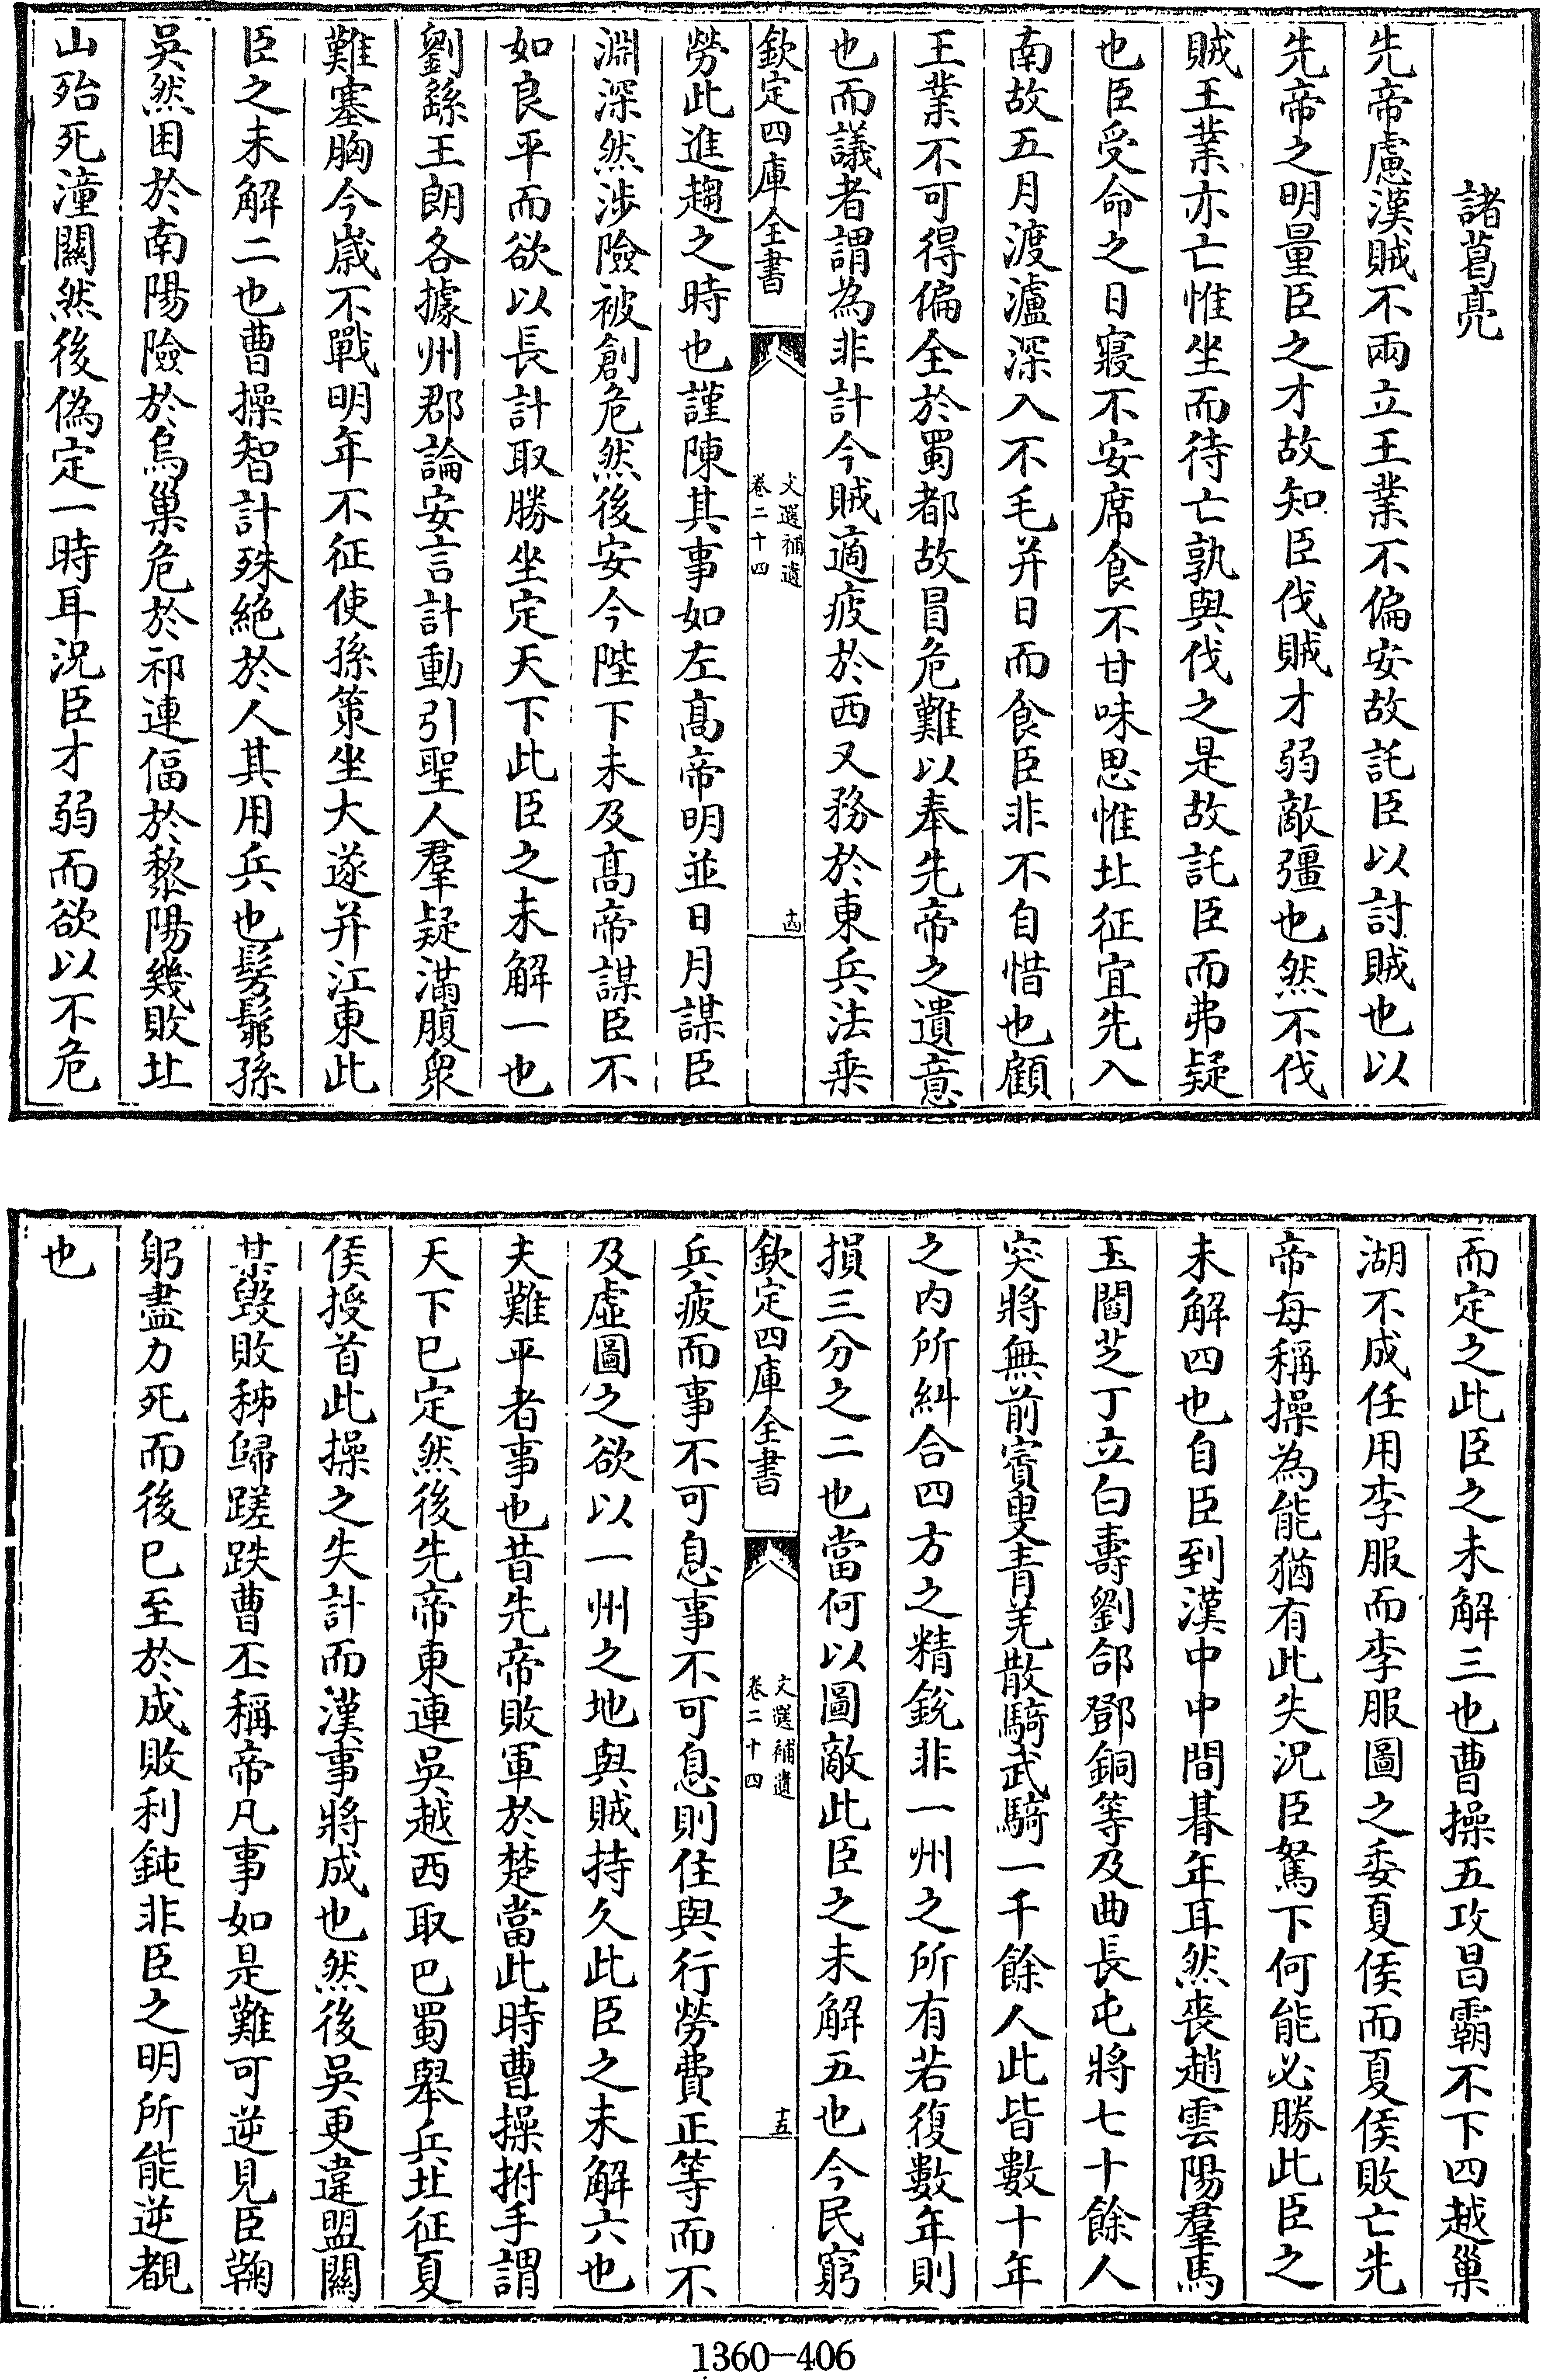 諸葛亮
先帝慮漢賊不兩立王業不偏安故託臣以討賊也以
先帝之明量臣之才故知臣伐賊才弱敵彊也然不伐
賊王業亦亡惟坐而待亡孰與伐之是故託臣而弗疑
也臣受命之日寢不安席食不甘味思惟北征宜先入
南故五月渡瀘深入不毛并日而食臣非不自惜也顧
王業不可得偏全於蜀都故冒危難以奉先帝之遺意
也而議者謂為非計今賊適疲於西又務於東兵法乘
欽定四庫全書
文選補遺
卷二十四
十四
勞此進趨之時也謹陳其事如左高帝明並日月謀臣
淵深然涉險被創危然後安今陛下未及高帝謀臣不
如良平而欲以長計取勝坐定天下此臣之未解一也
劉繇王朗各據州郡論安言計動引聖人羣疑滿腹衆
難塞胸今歲不戰明年不征使孫策坐大遂并江東此
臣之未解二也曹操智計殊絶於人其用兵也髣髴孫
吳然困於南陽險於烏巢危於祁連偪於黎陽幾敗北
山殆死潼關然後偽定一時耳況臣才弱而欲以不危
而定之此臣之未解三也曹操五攻昌霸不下四越巢
湖不成任用李服而李服圖之委夏侯而夏侯敗亡先
帝每稱操為能猶有此失况臣駑下何能必勝此臣之
未解四也自臣到漢中中間朞年耳然喪趙雲陽羣馬
玉閻芝丁立白壽劉郃鄧銅等及曲長屯將七十餘人
突將無前賨叟青羌散騎武騎一千餘人此皆數十年
之内所糾合四方之精鋭非一州之所有若復數年則
損三分之二也當何以圖敵此臣之未解五也今民窮
欽定四庫全書
文選補遺
卷二十四
十五
兵疲而事不可息事不可息則住與行勞費正等而不
及虛圖之欲以一州之地與賊持久此臣之未解六也
夫難平者事也昔先帝敗軍於楚當此時曹操拊手謂
天下已定然後先帝東連吳越西取巴蜀舉兵北征夏
侯授首此操之失計而漢事將成也然後吳更違盟關
某毀敗秭歸蹉跌曹丕稱帝凡事如是難可逆見臣鞠
躬盡力死而後已至於成敗利鈍非臣之明所能逆覩
也
1360-406